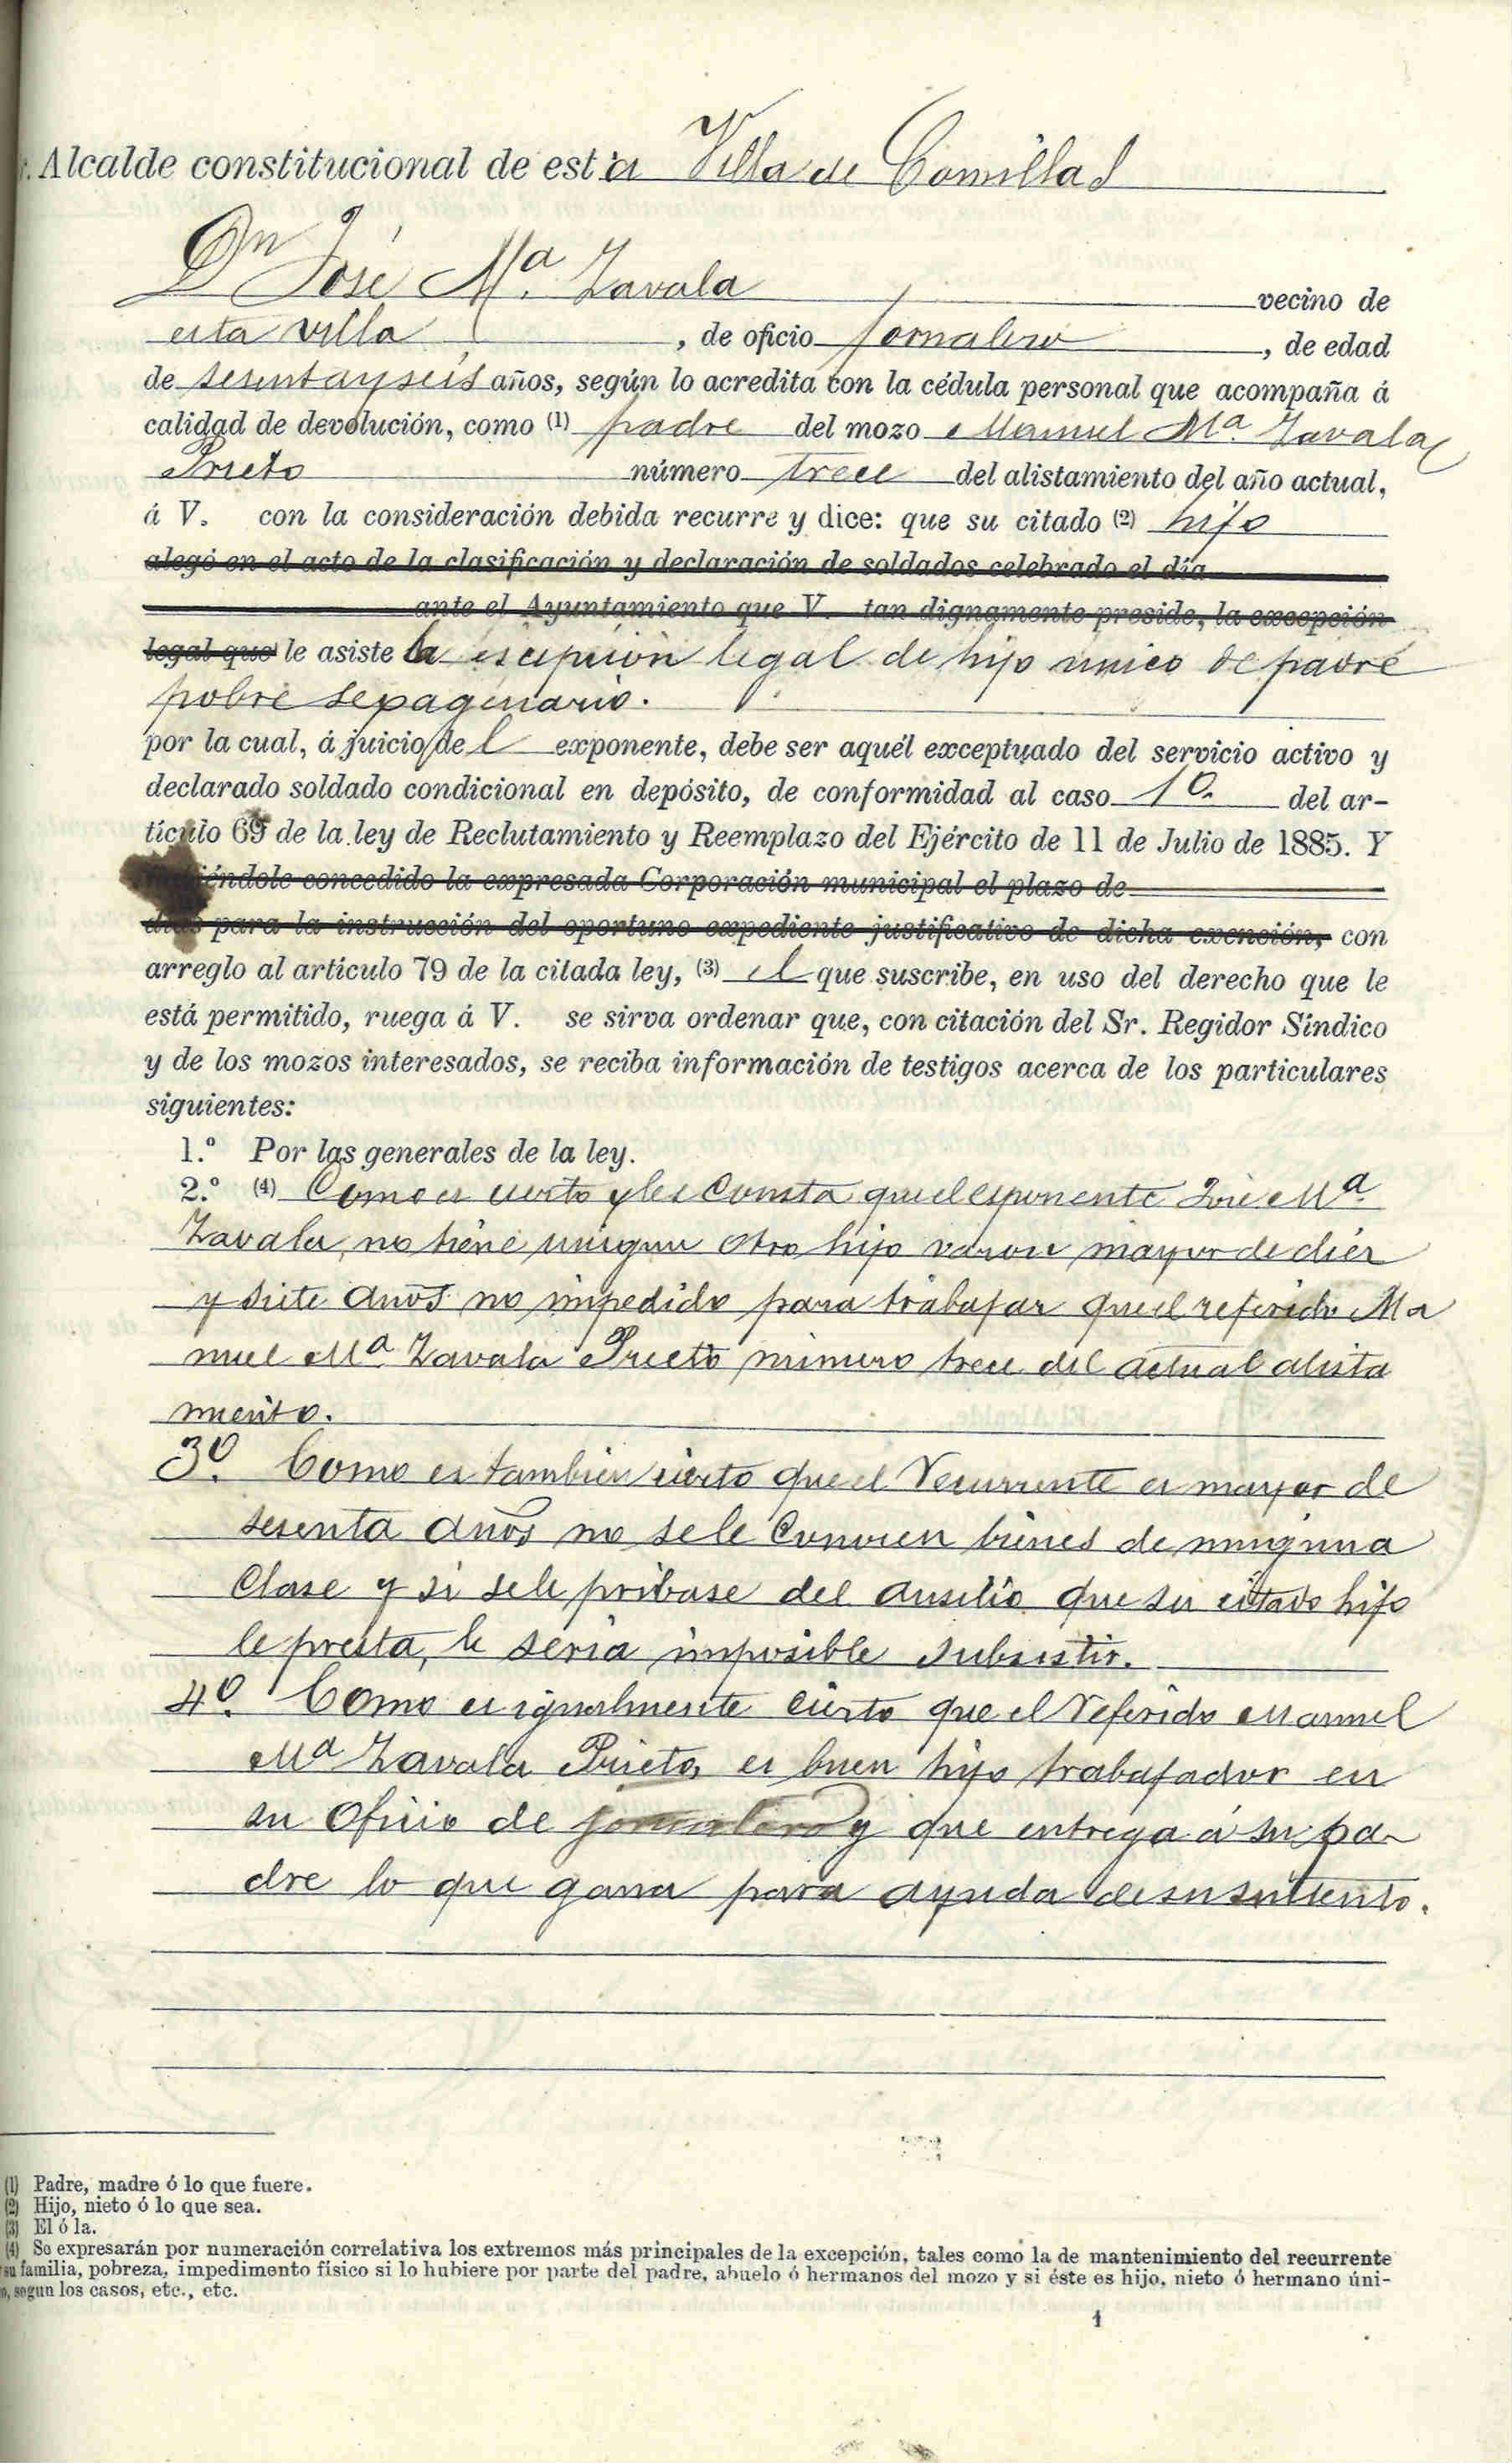 r. Alcalde constitucional de esta Villa de Comillas
Dn José Mª. Zavala vecino de
esta villa, de oficio jornalero, de edad
de sesentayseis años, según lo acredita con la cédula personal que acompaña á
calidad de devolución, como (1) padre del mozo Manuel Mª. Zavala
Prieto número trece del alistamiento del año actual,
á V. con la consideración debida recurre y dice: que su citado (2) hijo
alegó en el acto de la clasificación y declaración de soldados celebrado el día
ante el Ayuntamiento que V. tan dignamente preside, la excepción
legal que le asiste la escepción legal de hijo unico de padre
pobre sexagenario.
por la cual, á juicio del exponente, debe ser aquél exceptuado del servicio activo y
declarado soldado condicional en depósito, de conformidad al caso 1º. del ar-
tículo 69 de la ley de Reclutamiento y Reemplazo del Ejército de 11 de Julio de 1885. Y
habiéndole concedido la expresada Corporación municipal el plazo de
días para la instrucción del oportuno expediente justificativo de dicha exención, con
arreglo al artículo 79 de la citada ley, (3) el que suscribe, en uso del derecho que le
está permitido, ruega á V. se sirva ordenar que, con citación del Sr. Regidor Síndico
y de los mozos interesados, se reciba información de testigos acerca de los particulares
siguientes:
1.º Por las generales de la ley.
2.º (4) Como es cierto y les consta que el esponente José Mª.
Zavala, no tiene ningun otro hijo varon mayor de diez
y siete años no impedido para trabajar que el referido Ma
nuel Mª. Zavala Prieto número trece del actual alista
miento.
3º. Como es tambien cierto que el recurrente es mayor de
sesenta años no se le conocen bienes de ninguna
clase y si se le pribase del ausilio que su citado hijo
le presta, le seria imposible subsistir.
4º. Como es igualmente cierto que el referido Manuel
Mª Zavala Prieto, es buen hijo trabajador en
su oficio de jornalero y que entrega á su pa-
dre lo que gana para ayuda de su sustento.
(1) Padre, madre ó lo que fuere.
(2) Hijo, nieto ó lo que sea.
(3) El ó la.
(4) Se expresarán por numeración correlativa los extremos más principales de la excepción, tales como la de mantenimiento del recurrente
su familia, pobreza, impedimento físico si lo hubiere por parte del padre, abuelo ó hermanos del mozo y si éste es hijo, nieto ó hermano úni-
o, según los casos, etc., etc.
1